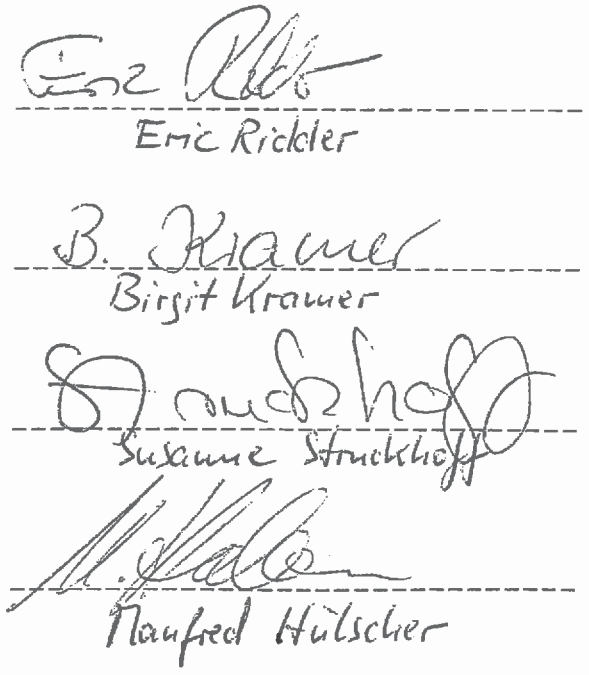 Eric
Eric Rickler
B. Kramer
Birgit Kramer
Struckhoff
Susanne Struckhoff
M.
Manfred Hülscher